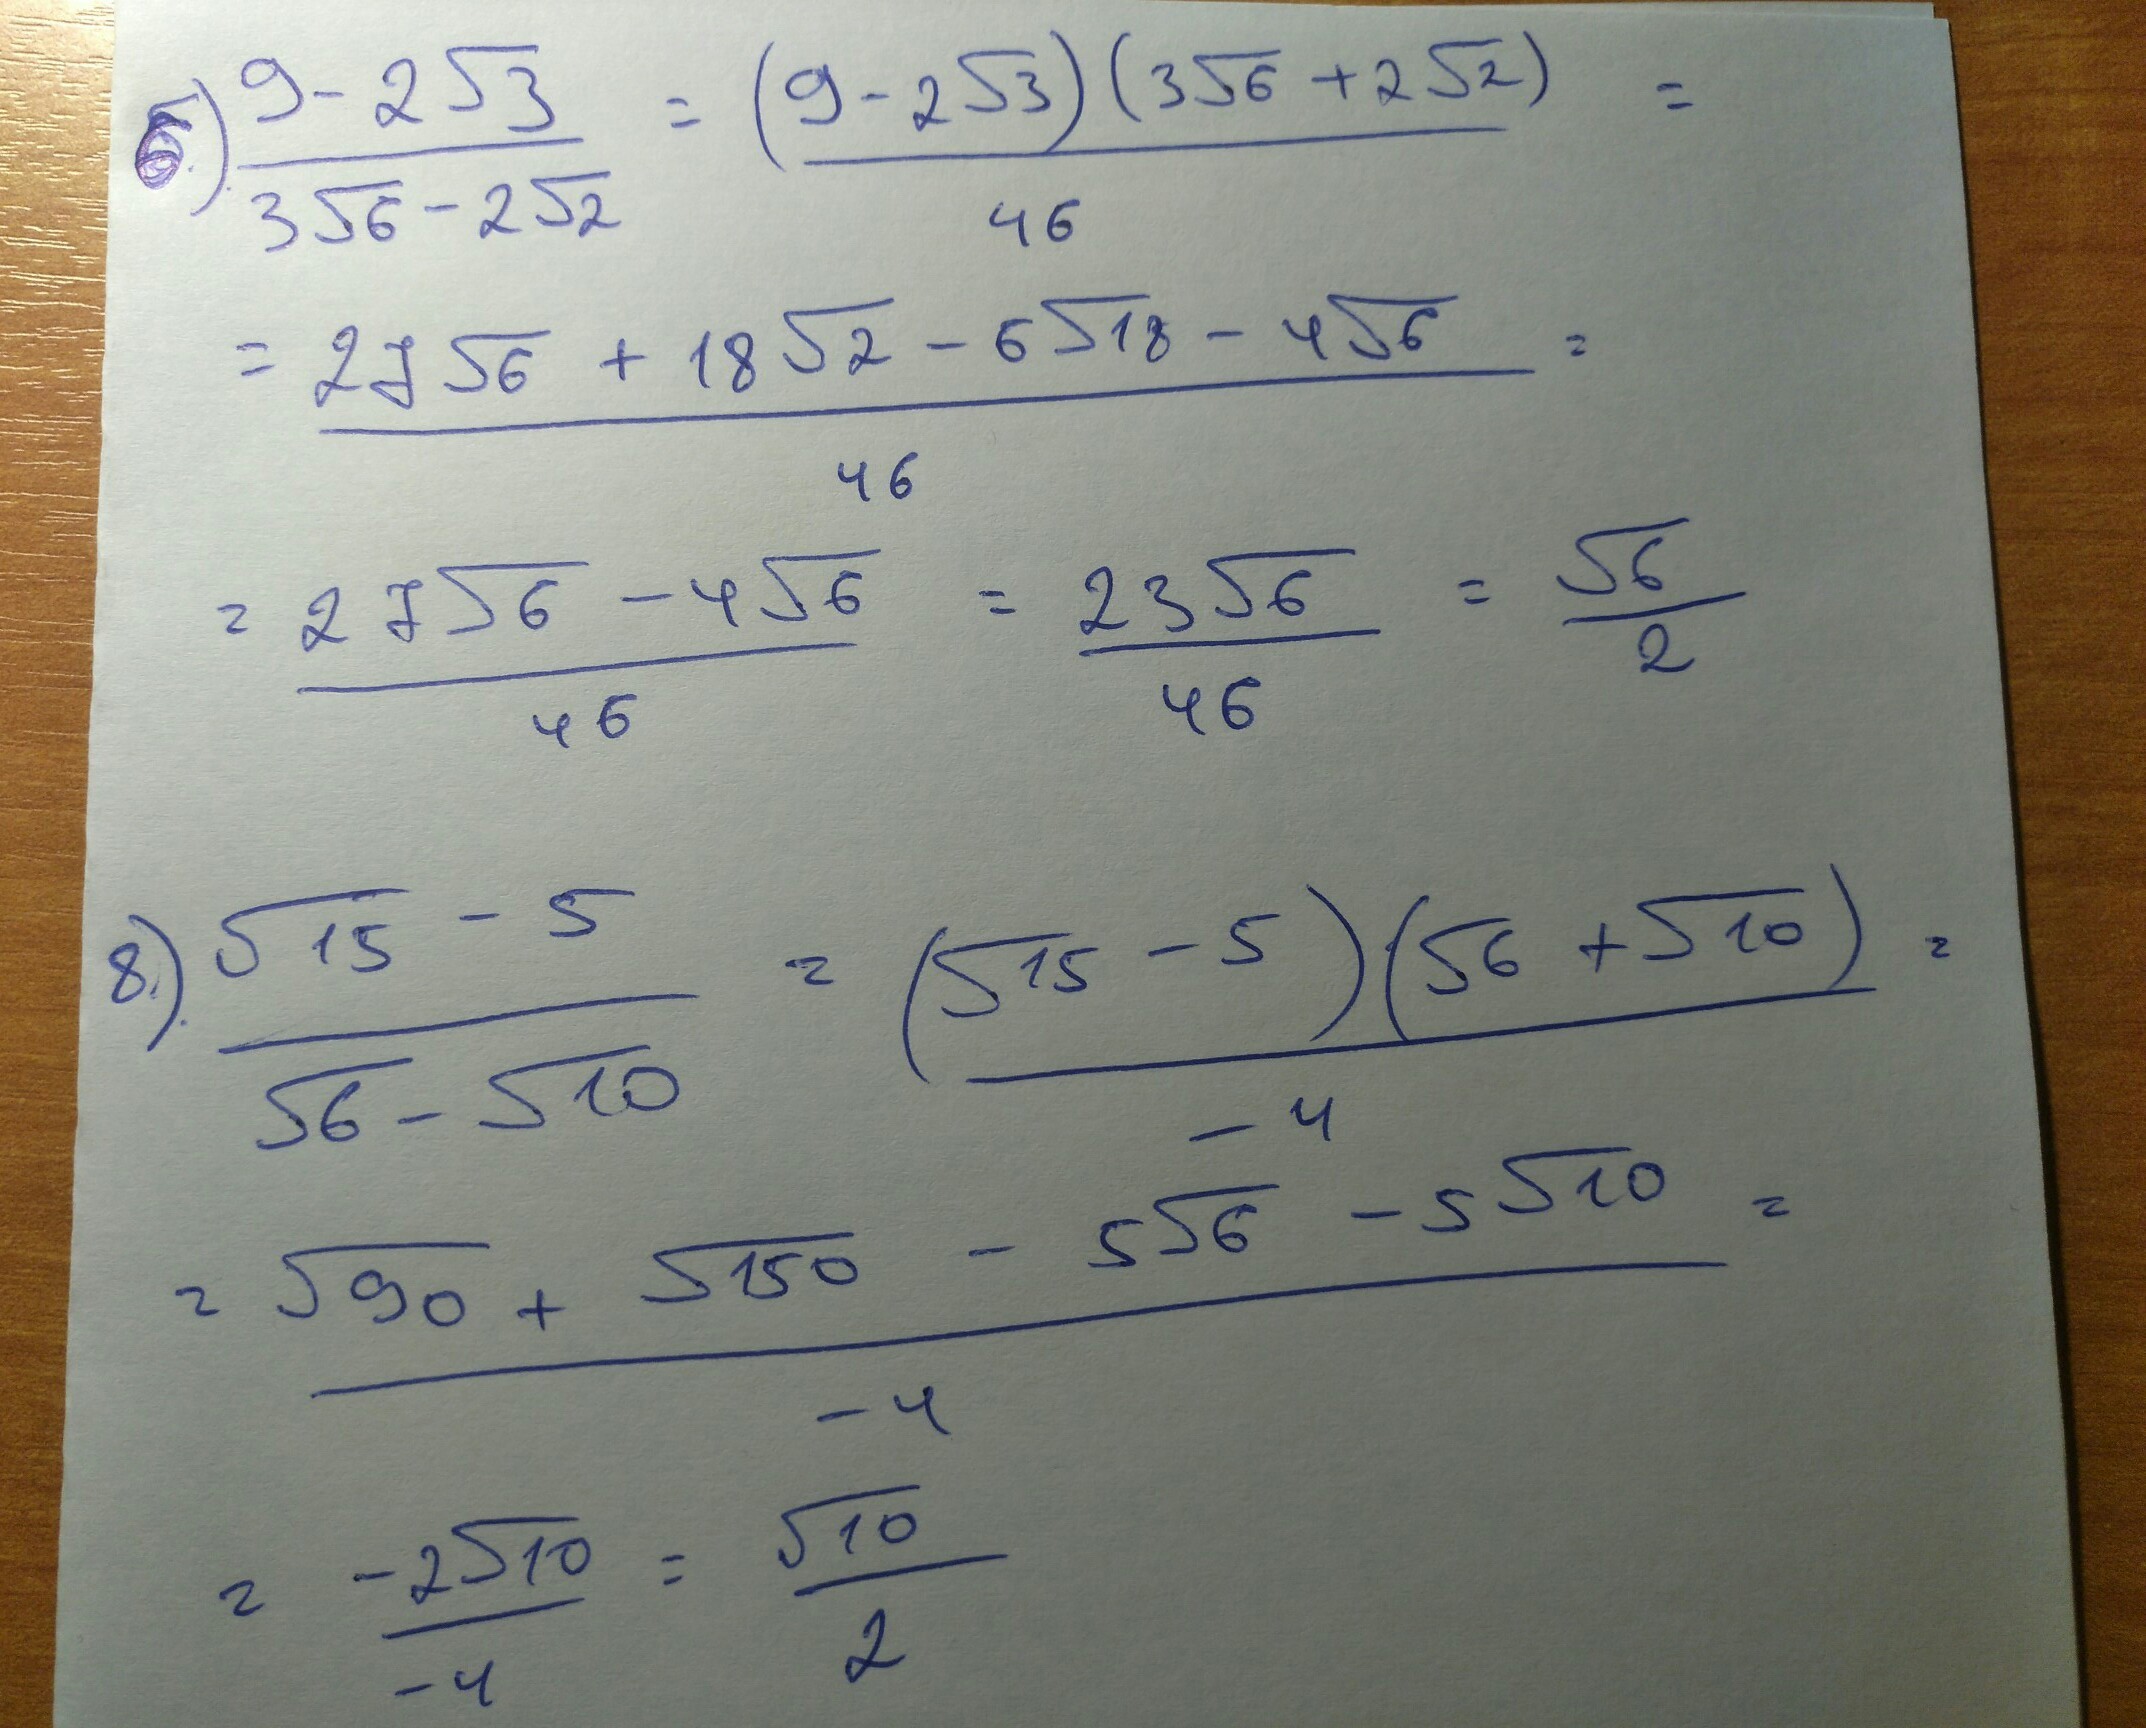 6.) (9 - 2√3)/(3√6 - 2√2) = ((9 - 2√3)(3√6 + 2√2))/46 =
= (27√6 + 18√2 - 6√18 - 4√6)/46 =
= (27√6 - 4√6)/46 = 23√6/46 = √6/2
8.) (√15 - 5)/(√6 - √10) = ((√15 - 5)(√6 + √10))/-4 =
= (√90 + √150 - 5√6 - 5√10)/-4 =
= -2√10/-4 = √10/2